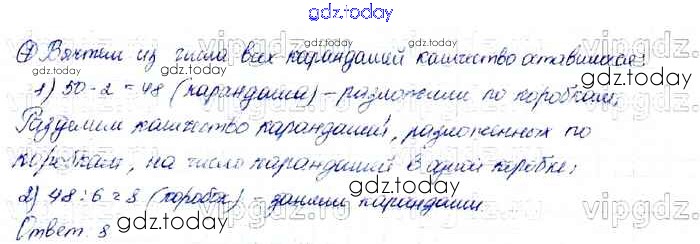 gdz.today
④ Вычтем из числа всех карандашей количество оставшихся:
gdz.today
1) 50-2=48 (карандаша) – разложили по коробкам.
gdz.today
Разделим количество карандашей, разложенных по
коробкам, на число карандашей в одной коробке:
gdz.today
2) 48:6=8 (коробок) – заняли карандаши.
gdz.today
Ответ: 8
gdz.today
vipgdz